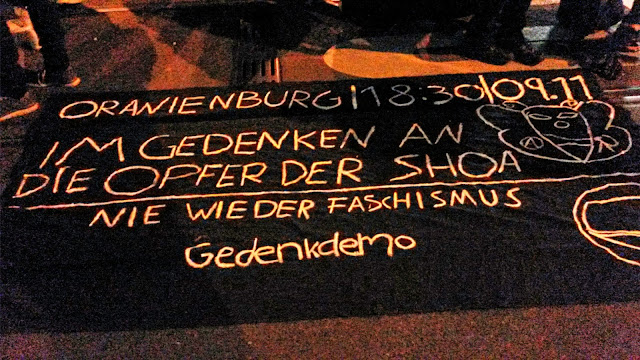 ORANIENBURG | 18:30 | 09.11
IM GEDENKEN AN
DIE OPFER DER SHOA
NIE WIEDER FASCHISMUS
Gedenkdemo